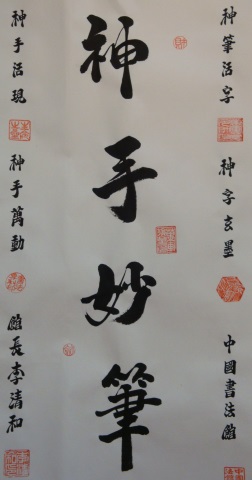 神筆活字
神字玄墨
中國書法館
神手妙筆
神手活現
神手萬動
館長李清和